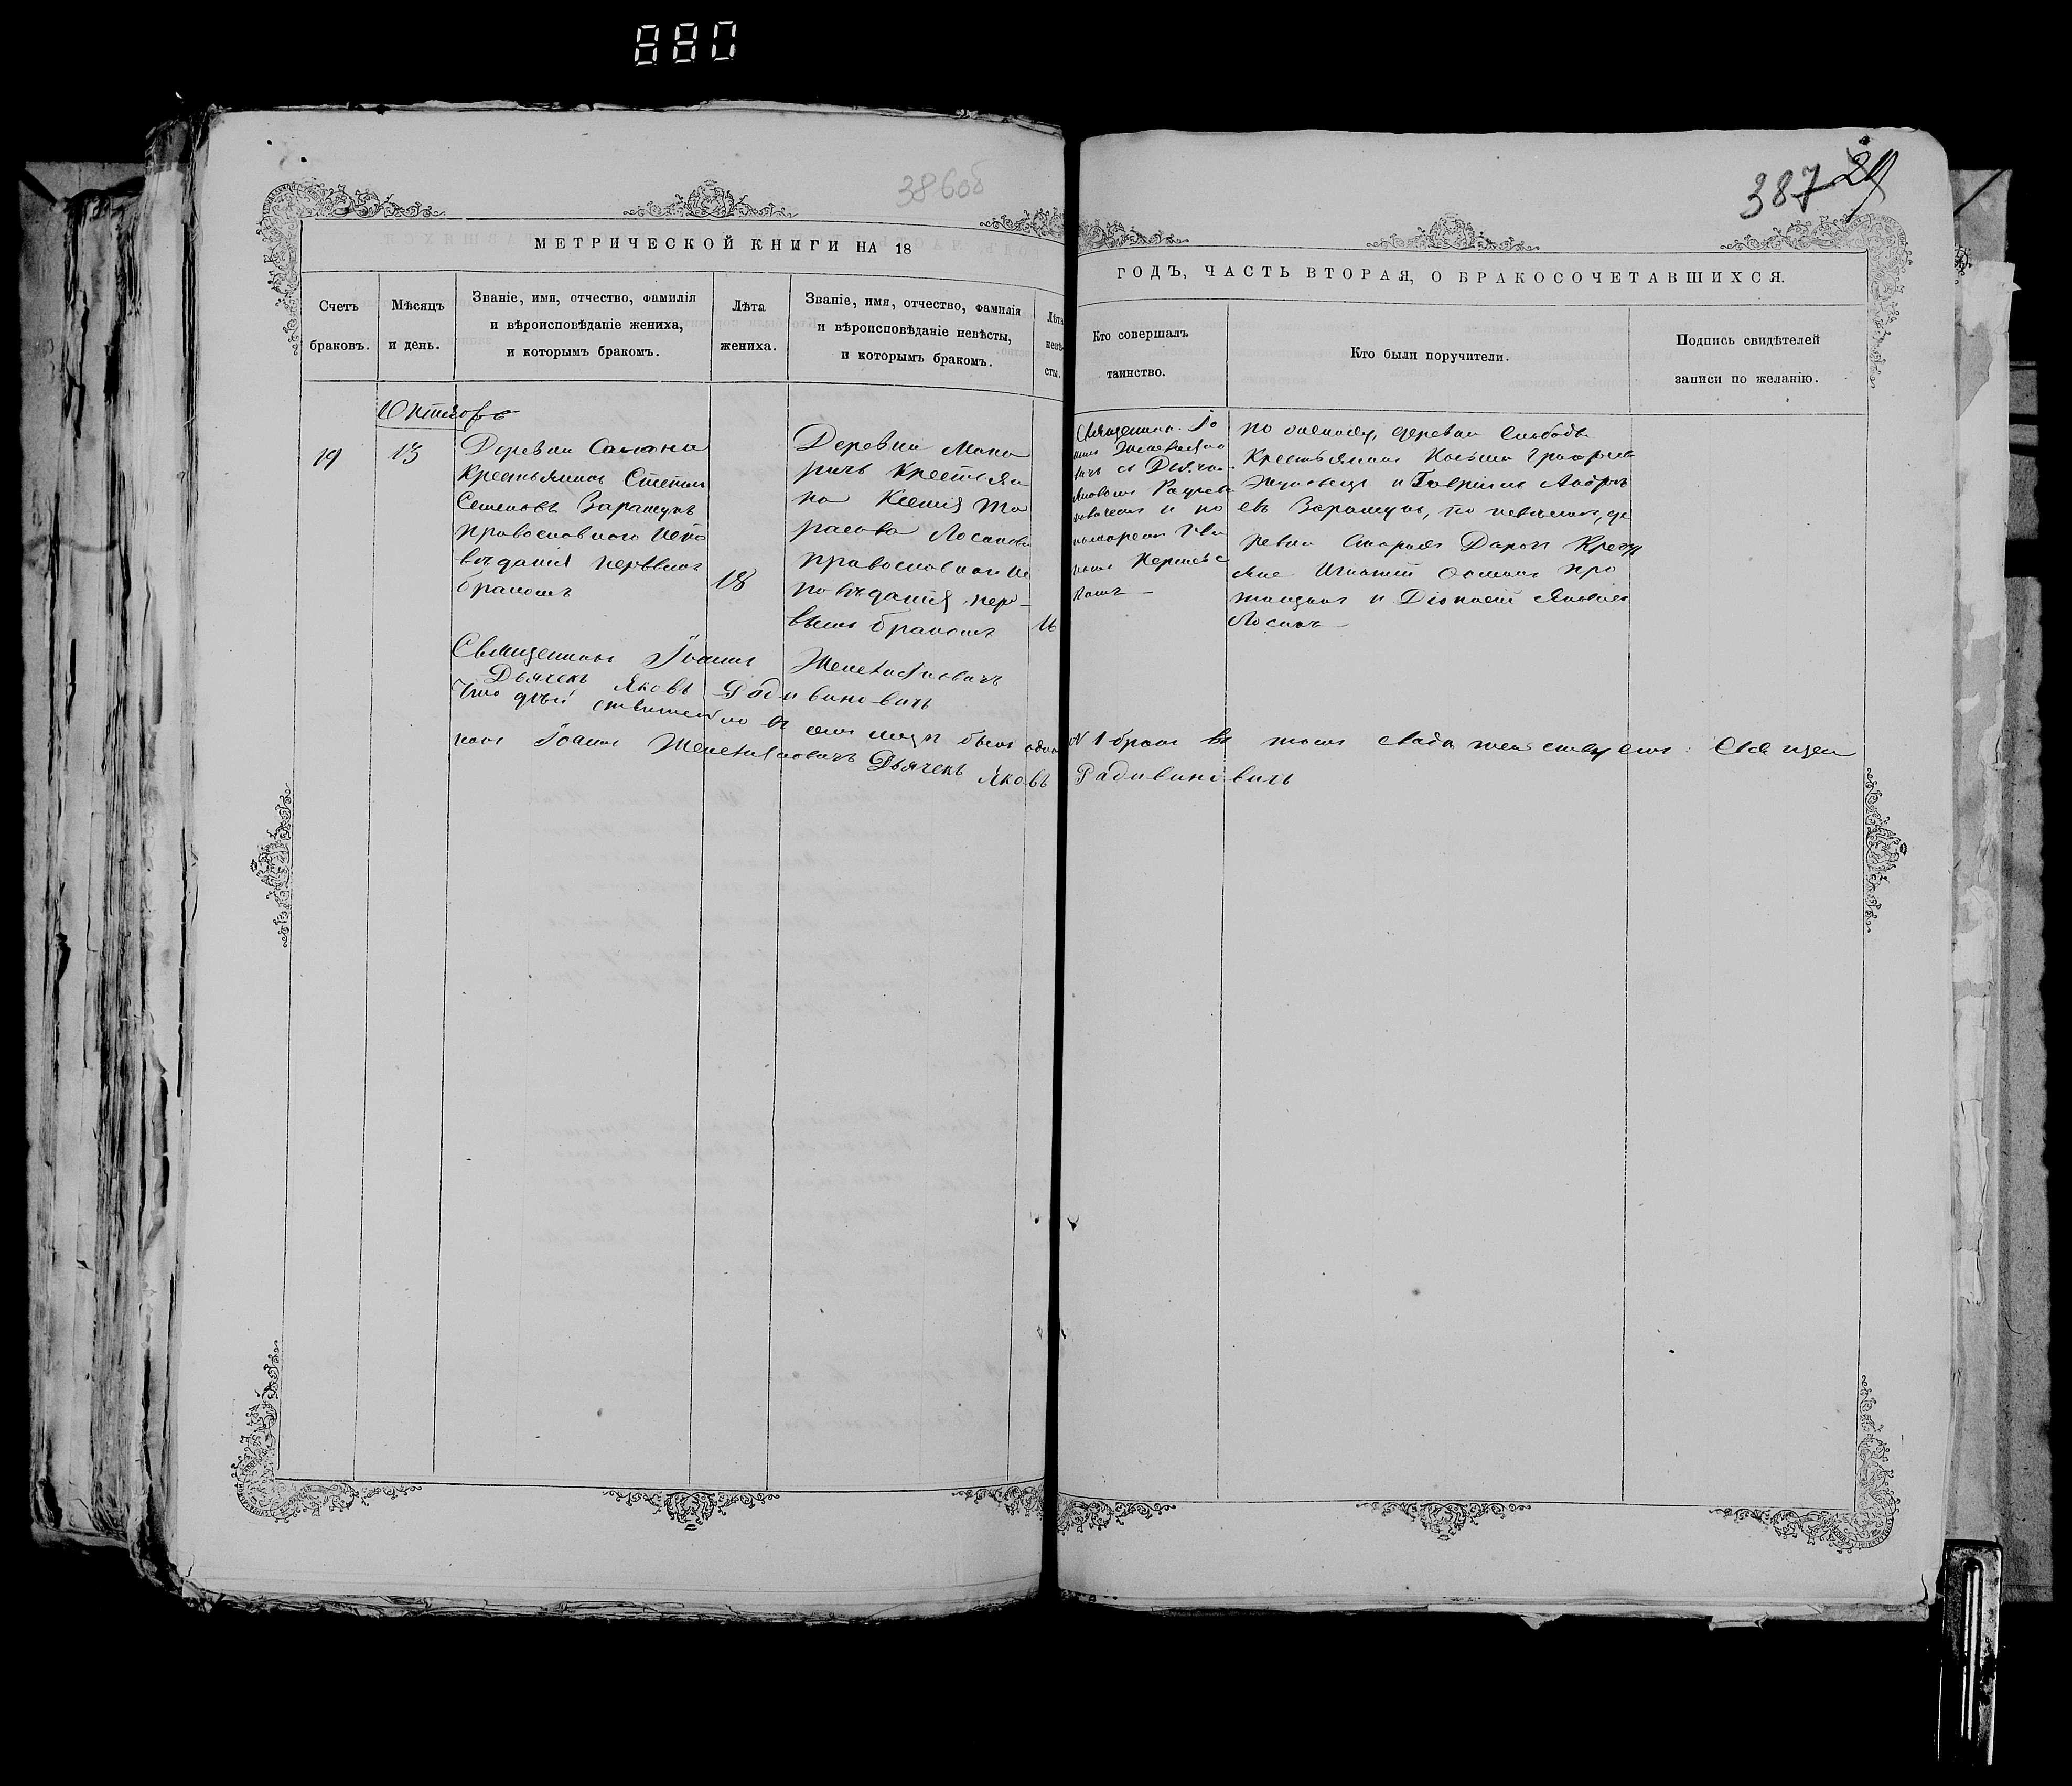 880
386об
387 29
МЕТРИЧЕСКОЙ КНИГИ НА 18
ГОДЪ, ЧАСТЬ ВТОРАЯ, О БРАКОСОЧЕТАВШИХСЯ.
Счетъ
браковъ.
Мѣсяцъ
и день.
Званіе, имя, отчество, фамилія
и вѣроисповѣданіе жениха,
и которымъ бракомъ.
Лѣта
жениха.
Званіе, имя, отчество, фамилія
и вѣроисповѣданіе невѣсты,
и которымъ бракомъ.
Лѣта
невѣ-
сты.
Кто совершалъ
таинство.
Кто были поручители.
Подпись свидѣтелей
записи по желанію.
Октяорь
19
13
Деревни
Крестьянинъ Стефанъ
Семеновъ Варатукъ
православнаго испо
вѣданія первымъ
бракомъ
18
Деревни Мака
ричъ Крестьян
ка Ксенія Та
расова Лосакова
православнаго ис
повѣданія пер-
вымъ бракомъ
16
Священник Іо
и Дьячк
Яковом Радиви
новичем и по
номарем
По жениху, деревни Слободы
Крестьянин
и Гавріилъ Андре
евъ Варатукъ, по невѣстѣ, де
ревни Старыхъ Дорогъ Кресть
яне Игнатій
и Діонисій Яковлев
Лосакъ
Священникъ Іоаннъ
Дьячекъ Яковъ Радивиновичъ
Что дѣйствительно въ семъ мцѣ былъ одинъ № 1 бракъ въ томъ свидѣтельствуемъ: Священ
никъ Іоаннъ Дьячекъ Яковъ Радивиновичъ